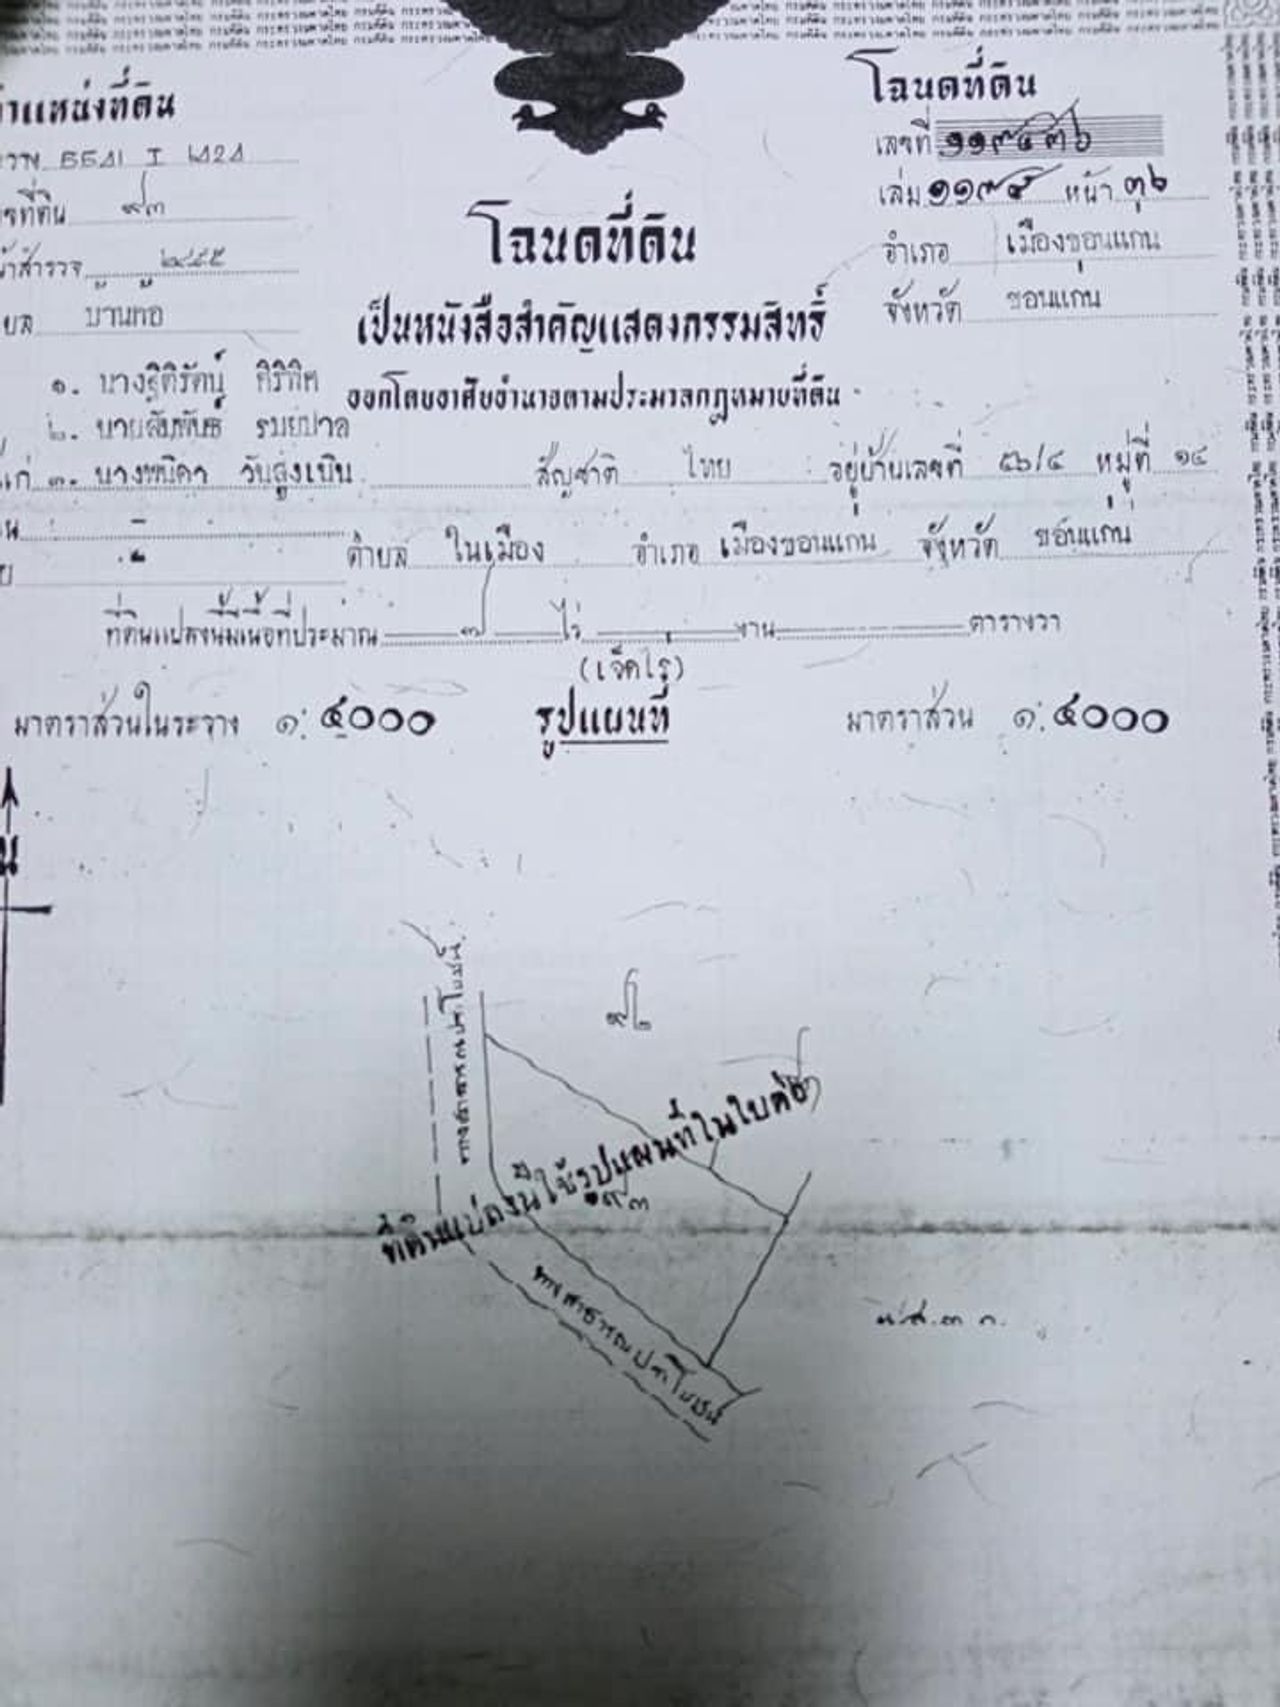 กระทรวงมหาดไทย กรมที่ดิน กระทรวงมหาดไทย กรมที่ดิน
ตำแหน่งที่ดิน
โฉนดที่ดิน
๕๕๔๑ I ๒๘๒๔
เลขที่ ๑๑๙๔๓๖
เลขที่ดิน ๙๓
เล่ม ๑๑๙๕ หน้า ๓๖
หน้าสำรวจ ๒๔๕๕
โฉนดที่ดิน
อำเภอ เมืองขอนแก่น
ตำบล บ้านค้อ
จังหวัด ขอนแก่น
เป็นหนังสือสำคัญแสดงกรรมสิทธิ์
๑. นางฐิติรัตน์ ศิริทิศ
ออกโดยอาศัยอำนาจตามประมวลกฎหมายที่ดิน
๒. นายสัมพันธ์ รมย์ปาล
๓. นางพนิดา วันสูงเนิน สัญชาติ ไทย อยู่บ้านเลขที่ ๕๖/๔ หมู่ที่ ๑๔
ตำบล ในเมือง อำเภอ เมืองขอนแก่น จังหวัด ขอนแก่น
ที่ดินแปลงนี้มีเนื้อที่ประมาณ ๗ ไร่ - งาน - ตารางวา
(เจ็ดไร่)
มาตราส่วนในระวาง ๑:๔๐๐๐ รูปแผนที่ มาตราส่วน ๑:๔๐๐๐
น
ทางสาธารณประโยชน์
๙๒
ที่ดินแปลงนี้ใช้รูปแผนที่ในใบต่อ
๙๓
ทางสาธารณประโยชน์
น.ส.๓ ก.